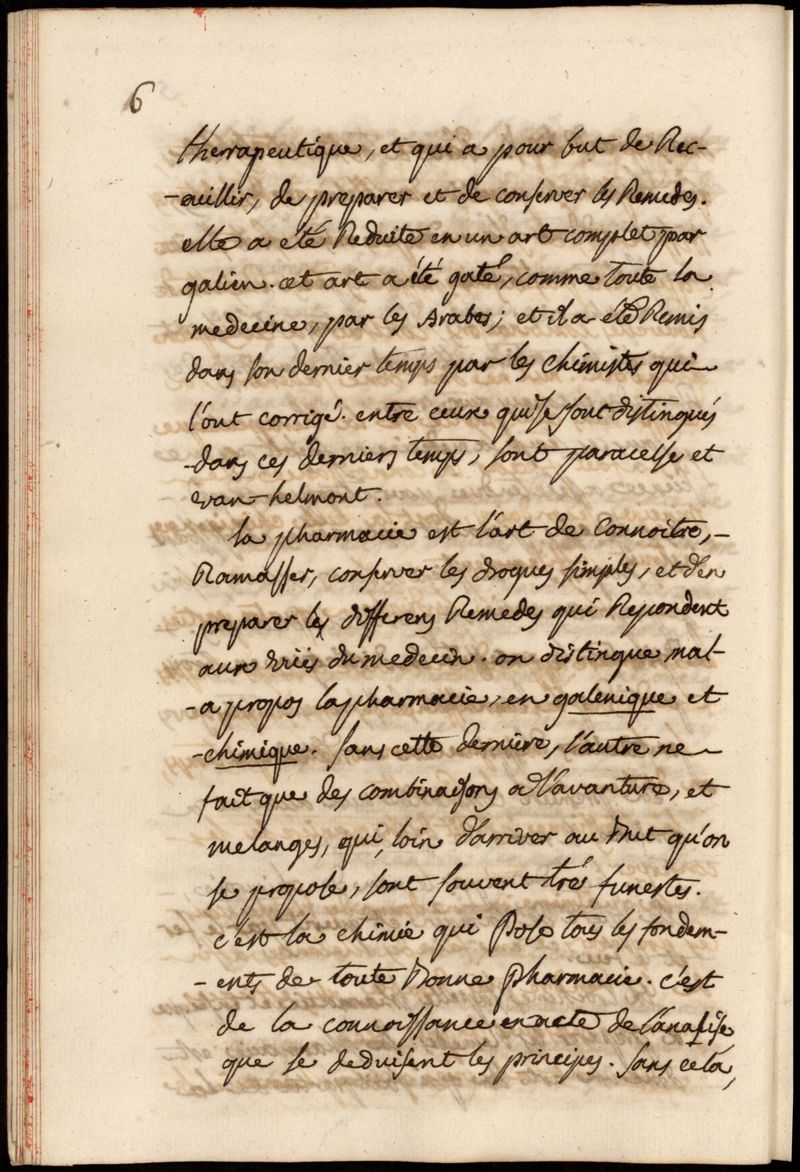 6
therrapeutique, et qui a pour but de Rec-
-œillir, de preparer et de conserver les Remedes.
elle a été Reduite en un art complet par
galien. cet art a été gaté, comme toute la
medecine, par les Arabes; et il a été Remis
dans son dernier temps par les chimistes qui
l'ont corrigé. entre ceux qui se sont distingués
-dans ces derniers temps, sont paracelse et
van-helmont.
la pharmacie est l'art de Connoitre,-
Ramasser, conserver les drogues simples, et d'en
preparer les differens Remedes qui Repondent
aux vües du medecin. on distingue mal-
-a propos la pharmacie, en galenique et
-chimique. sans cette derniere, l'autre ne
fait que des combinaisons a l'avanture, et
melanges, qui, loin d'arriver au but qu'on
se propose, sont souvent tré funestes.
c'est la chimie qui Pose tous les fondem-
-ents de toute bonne pharmacie. c'est
de la connoissance exacte de l'analise
que se deduisent les principes. sans cela,